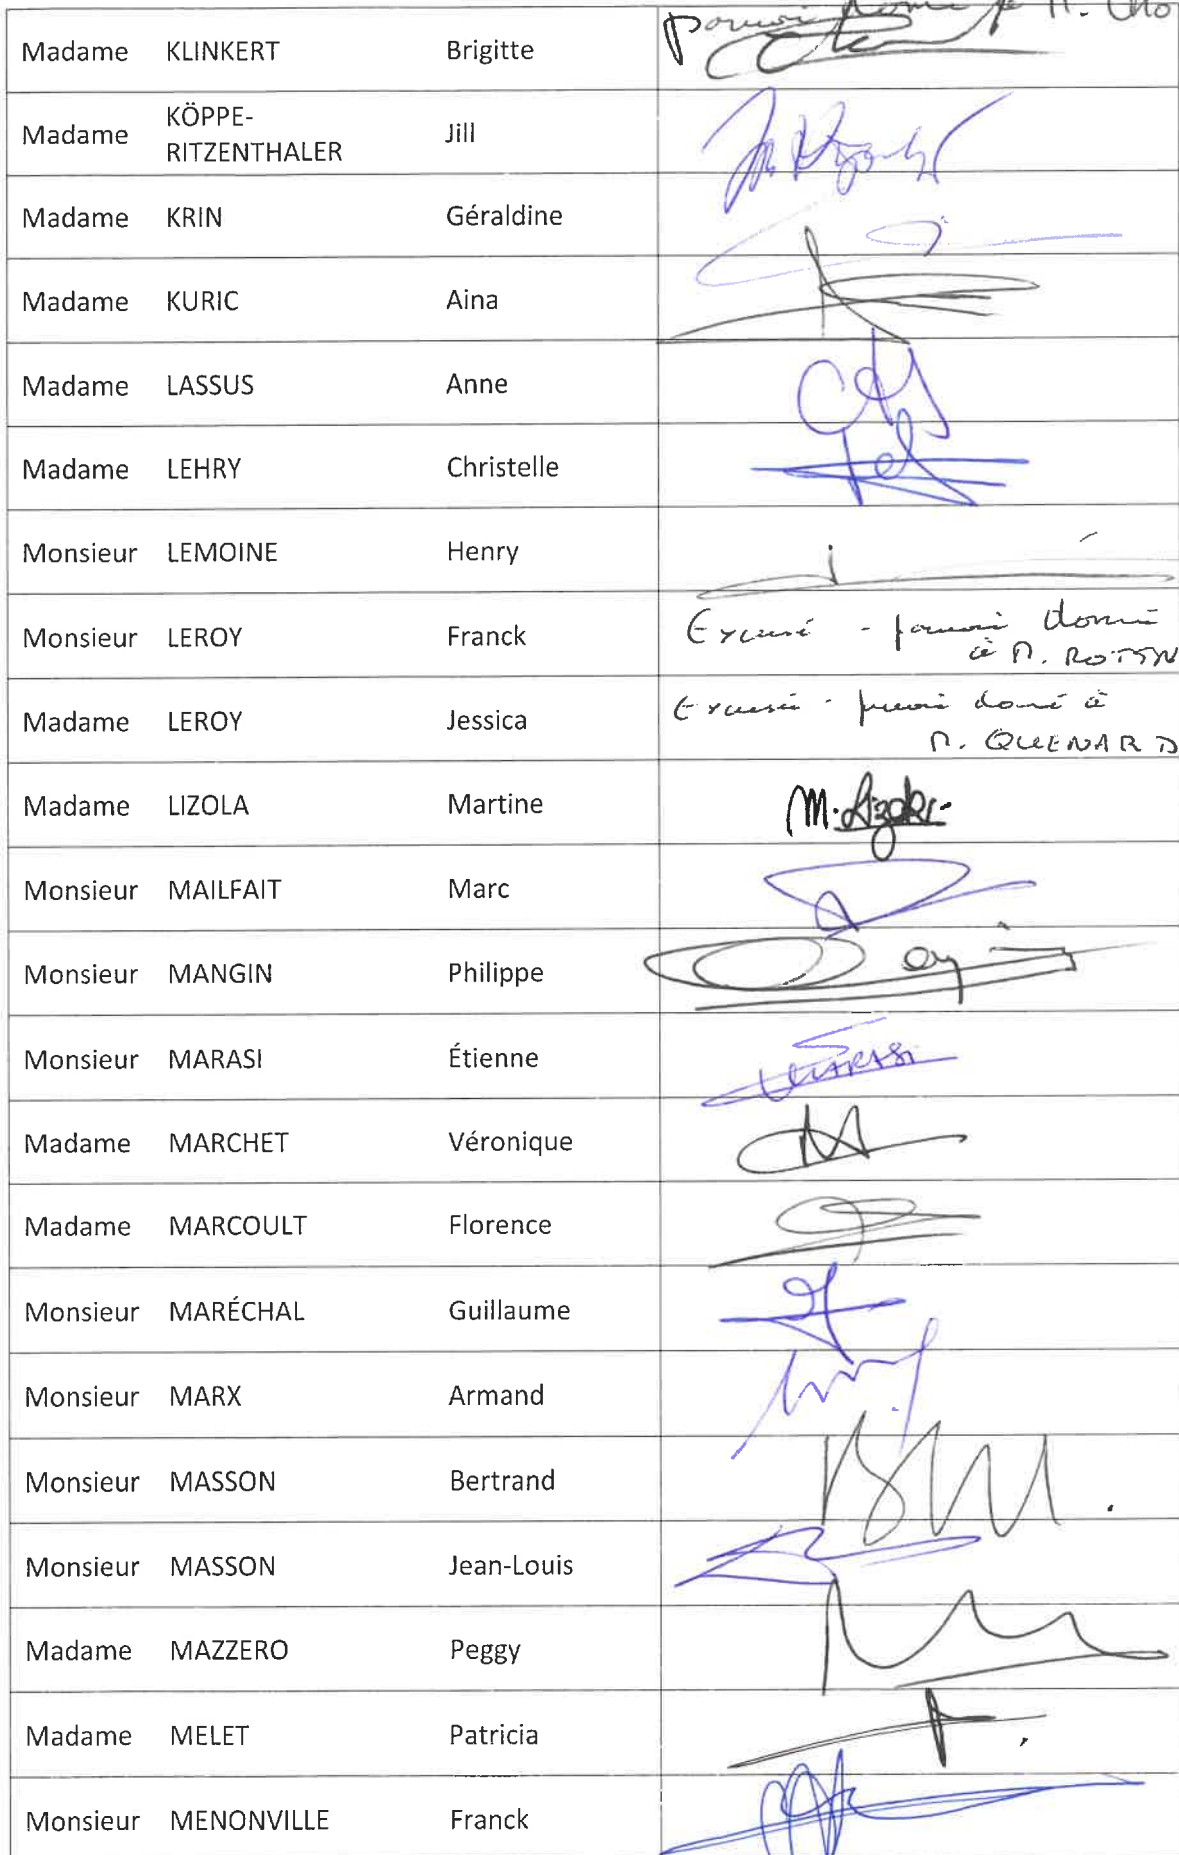 Madame KLINKERT Brigitte pouvoir donné
Madame KÖPPE-
RITZENTHALER Jill
Madame KRIN Géraldine
Madame KURIC Aina
Madame LASSUS Anne
Madame LEHRY Christelle
Monsieur LEMOINE Henry
Monsieur LEROY Franck Excusé - pouvoir donné
à M.
Madame LEROY Jessica Excusée - pouvoir donné à
M. QUENARD
Madame LIZOLA Martine M. Lizola
Monsieur MAILFAIT Marc
Monsieur MANGIN Philippe
Monsieur MARASI Étienne MARASI
Madame MARCHET Véronique
Madame MARCOULT Florence
Monsieur MARÉCHAL Guillaume
Monsieur MARX Armand
Monsieur MASSON Bertrand
Monsieur MASSON Jean-Louis
Madame MAZZERO Peggy
Madame MELET Patricia
Monsieur MENONVILLE Franck